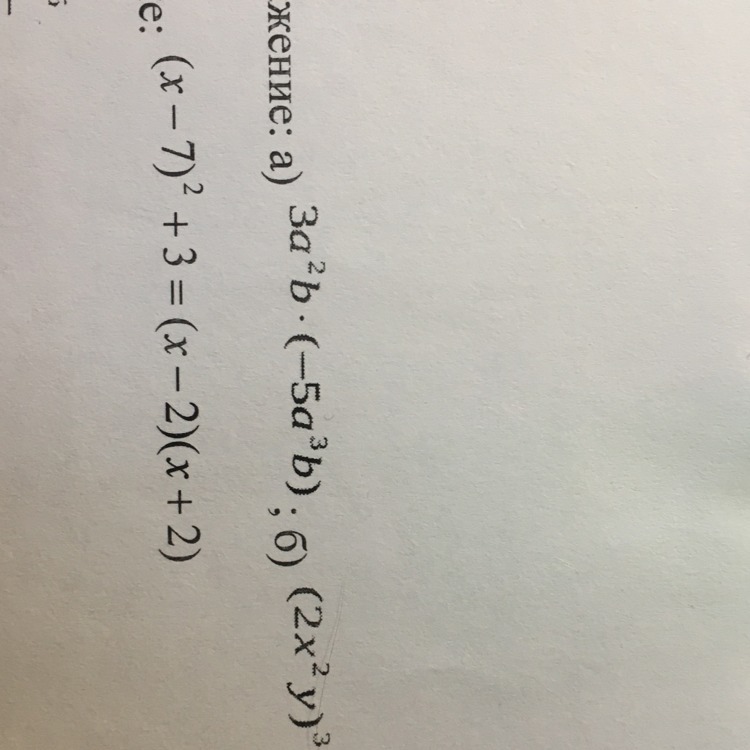 жение: а) 3a²b · (−5a³b) ; б) (2x²y)³
е: (x − 7)² + 3 = (x − 2)(x + 2)